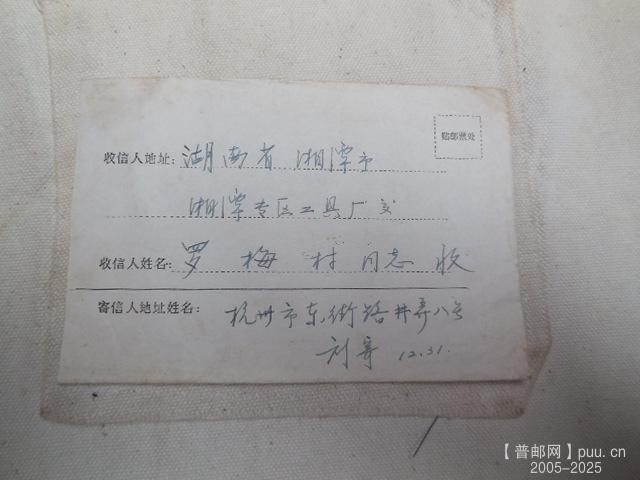 贴邮票处
收信人地址：湖南省 湘潭市
湘潭专区工具厂交
收信人姓名：罗梅村同志收
寄信人地址姓名：杭州市东街路井弄八号
刘寄 12.31.
【普邮网】puu.cn
2005-2025